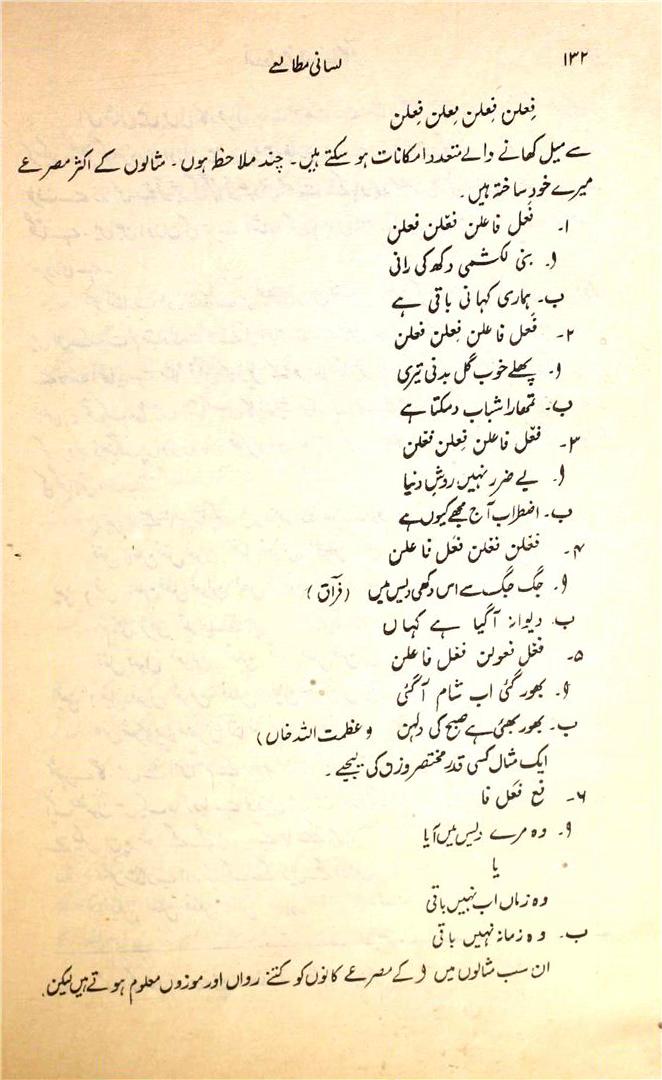 ۱۳۲
لسانی مطالعے
فِعلن فِعلن فِعلن فِعلن
سے میل کھانے والے متعدد امکانات ہو سکتے ہیں۔ چند ملاحظہ ہوں۔ مثالوں کے اکثر مصرعے
میرے خود ساختہ ہیں۔
۱۔ فَعل فاعلن فعْلن فعلن
ا۔ بنی لکشمی دکھ کی رانی
ب۔ ہماری کہانی باقی ہے
۲۔ فَعل فاعلن فعلن فعلن
ا۔ پھلے خوب گل بدنی تیری
ب۔ تمھارا شباب دمکتا ہے
۳۔ فعْل فاعلن فِعلن فعْلن
ا۔ بے ضرر نہیں روشِ دنیا
ب۔ اضطراب آج مجھے کیوں ہے
۴۔ فعْلن فعْلن فعْل فاعلن
ا۔ جگ جگ سے اس دکھی دیس میں (فراق)
ب۔ دیوانہ آگیا ہے کہاں
۵۔ فعْل فعولن فعْل فاعلن
ا۔ بھور گئی اب شام آگئی
ب۔ بھور بھئی ہے صبح کی دلہن (عظمت اللہ خاں)
ایک مثال کسی قدر مختصر وزن کی لیجیے۔
۶۔ فع فَعل فا
ا۔ وہ مرے دیس میں آیا
یا
وہ زماں اب نہیں باقی
ب۔ وہ زمانہ نہیں باقی
ان سب مثالوں میں ا کے مصرعے کانوں کو کتنے رواں اور موزوں معلوم ہوتے ہیں لیکن